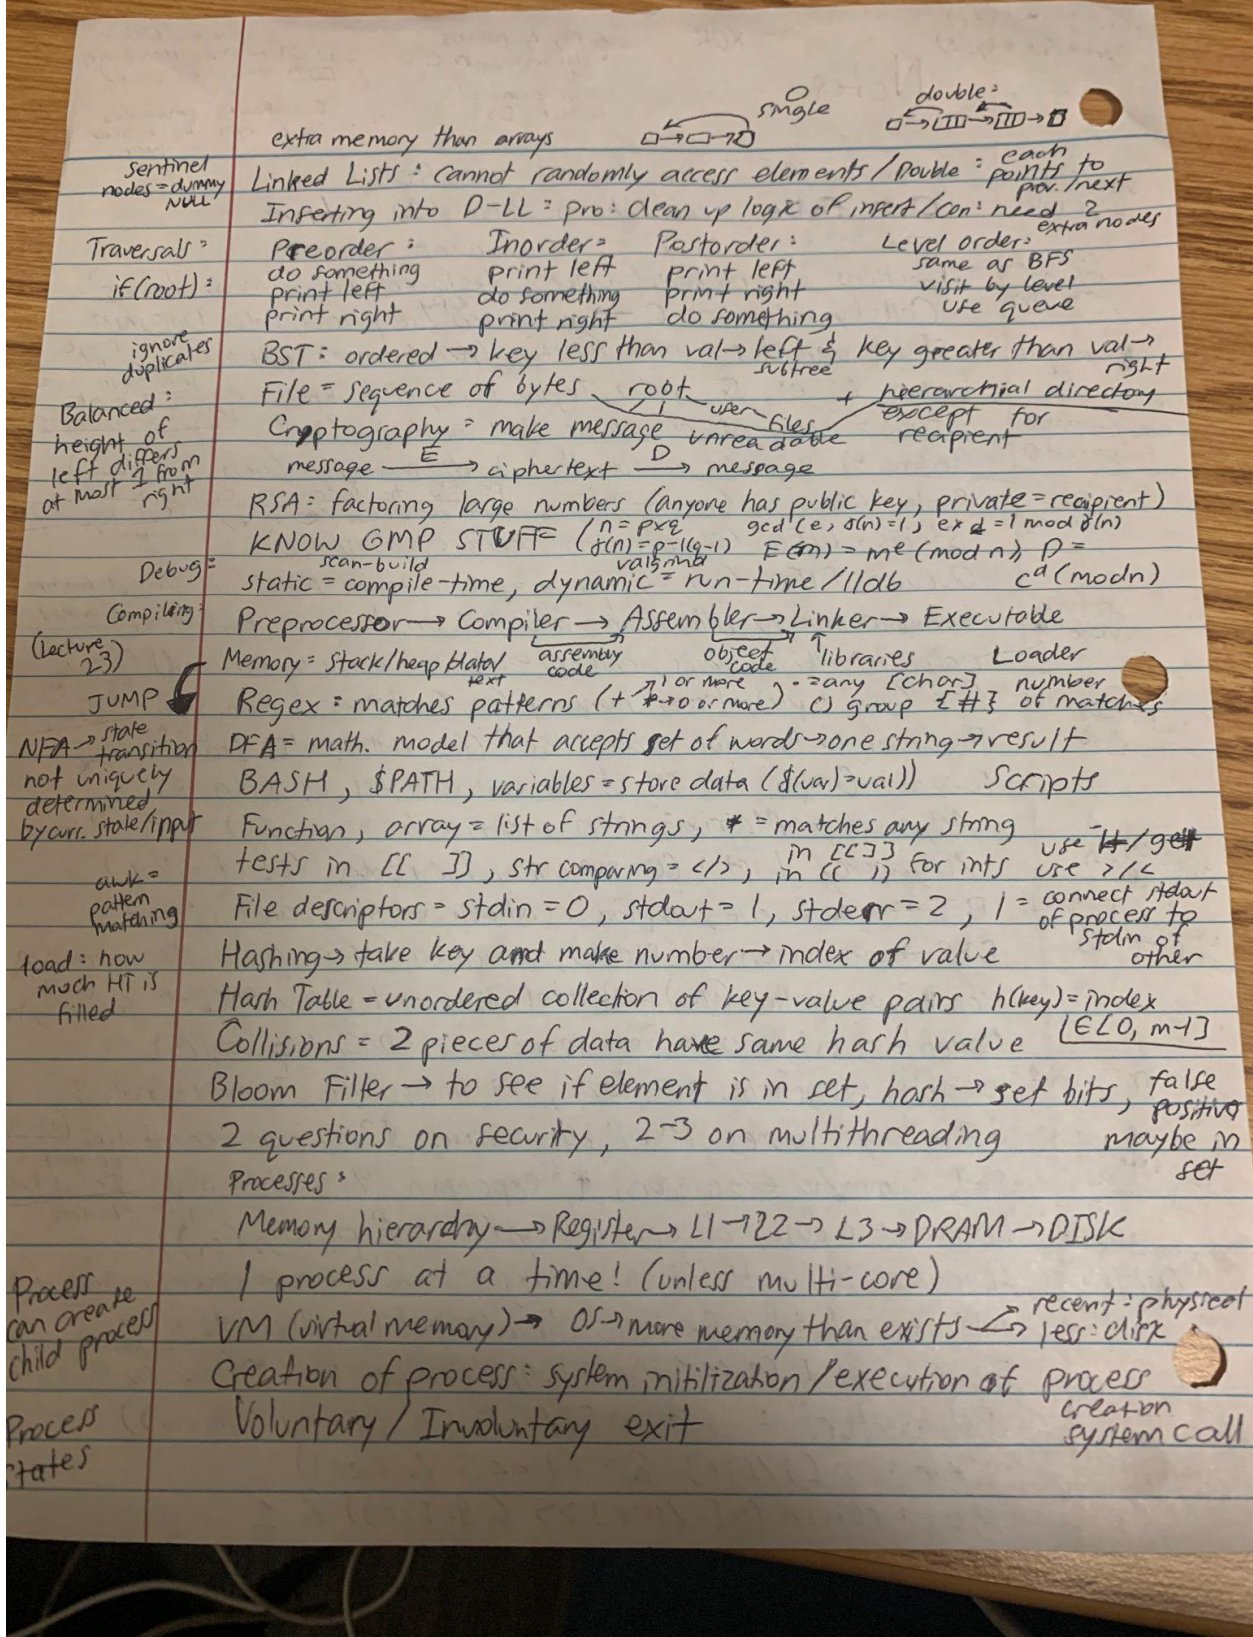 single
double:
extra memory than arrays
sentinel nodes = dummy NULL
Linked Lists: cannot randomly access elements / Double: each points to prev./next
Inserting into D-LL = pro: clean up logic of insert / con: need 2 extra nodes
Traversals:
if (root):
Preorder:
do something
print left
print right
Inorder:
print left
do something
print right
Postorder:
print left
print right
do something
Level order:
same as BFS
visit by level
use queue
ignore duplicates
BST: ordered → key less than val → left subtree & key greater than val → right
File = sequence of bytes root user files + hierarchial directory
Balanced: height of left differs at most 1 from right
Cryptography = make message unreadable except for recipient
message E→ ciphertext D→ message
RSA: factoring large numbers (anyone has public key, private = recipient)
KNOW GMP STUFF (n = pxq gcd(e, γ(n) = 1, exd = 1 mod γ(n)
γ(n) = p-1(q-1) E(m) = m^e (mod n), D = c^d (mod n)
Debug:
scan-build valgrind
static = compile-time, dynamic = run-time / lldb
Compiling:
Preprocessor → Compiler → Assembler → Linker → Executable
assembly code object code libraries Loader
(Lecture 23)
Memory = stack/heap/data/text
JUMP
Regex: matches patterns (+ → 1 or more * → 0 or more) . = any [char] () group {#} number of matches
NFA → state transition not uniquely determined by curr. state/input
DFA = math. model that accepts set of words → one string → result
BASH, $PATH, variables = store data ($(var)=val)) Scripts
Function, array = list of strings, * = matches any string in [[]]
tests in [[ ]], str comparing = </>, in (( )) for ints use >/<
use -lt/get
awk = pattern matching
File descriptors = stdin = 0, stdout = 1, stderr = 2, | = connect stdout of process to stdin of other
Hashing → take key and make number → index of value
load: how much HT is filled
Hash Table = unordered collection of key-value pairs h(key) = index
[∈[0, m-1]
Collisions = 2 pieces of data have same hash value
Bloom Filter → to see if element is in set, hash → set bits, false positive maybe in set
2 questions on security, 2-3 on multithreading
Processes:
Memory hierarchy → Register → L1 → L2 → L3 → DRAM → DISK
1 process at a time! (unless multi-core)
Process can create child process
VM (virtual memory) → OS → more memory than exists → recent: physical → less: disk
Creation of process: system initilization / execution of process creation system call
Voluntary / Involuntary exit
Process states